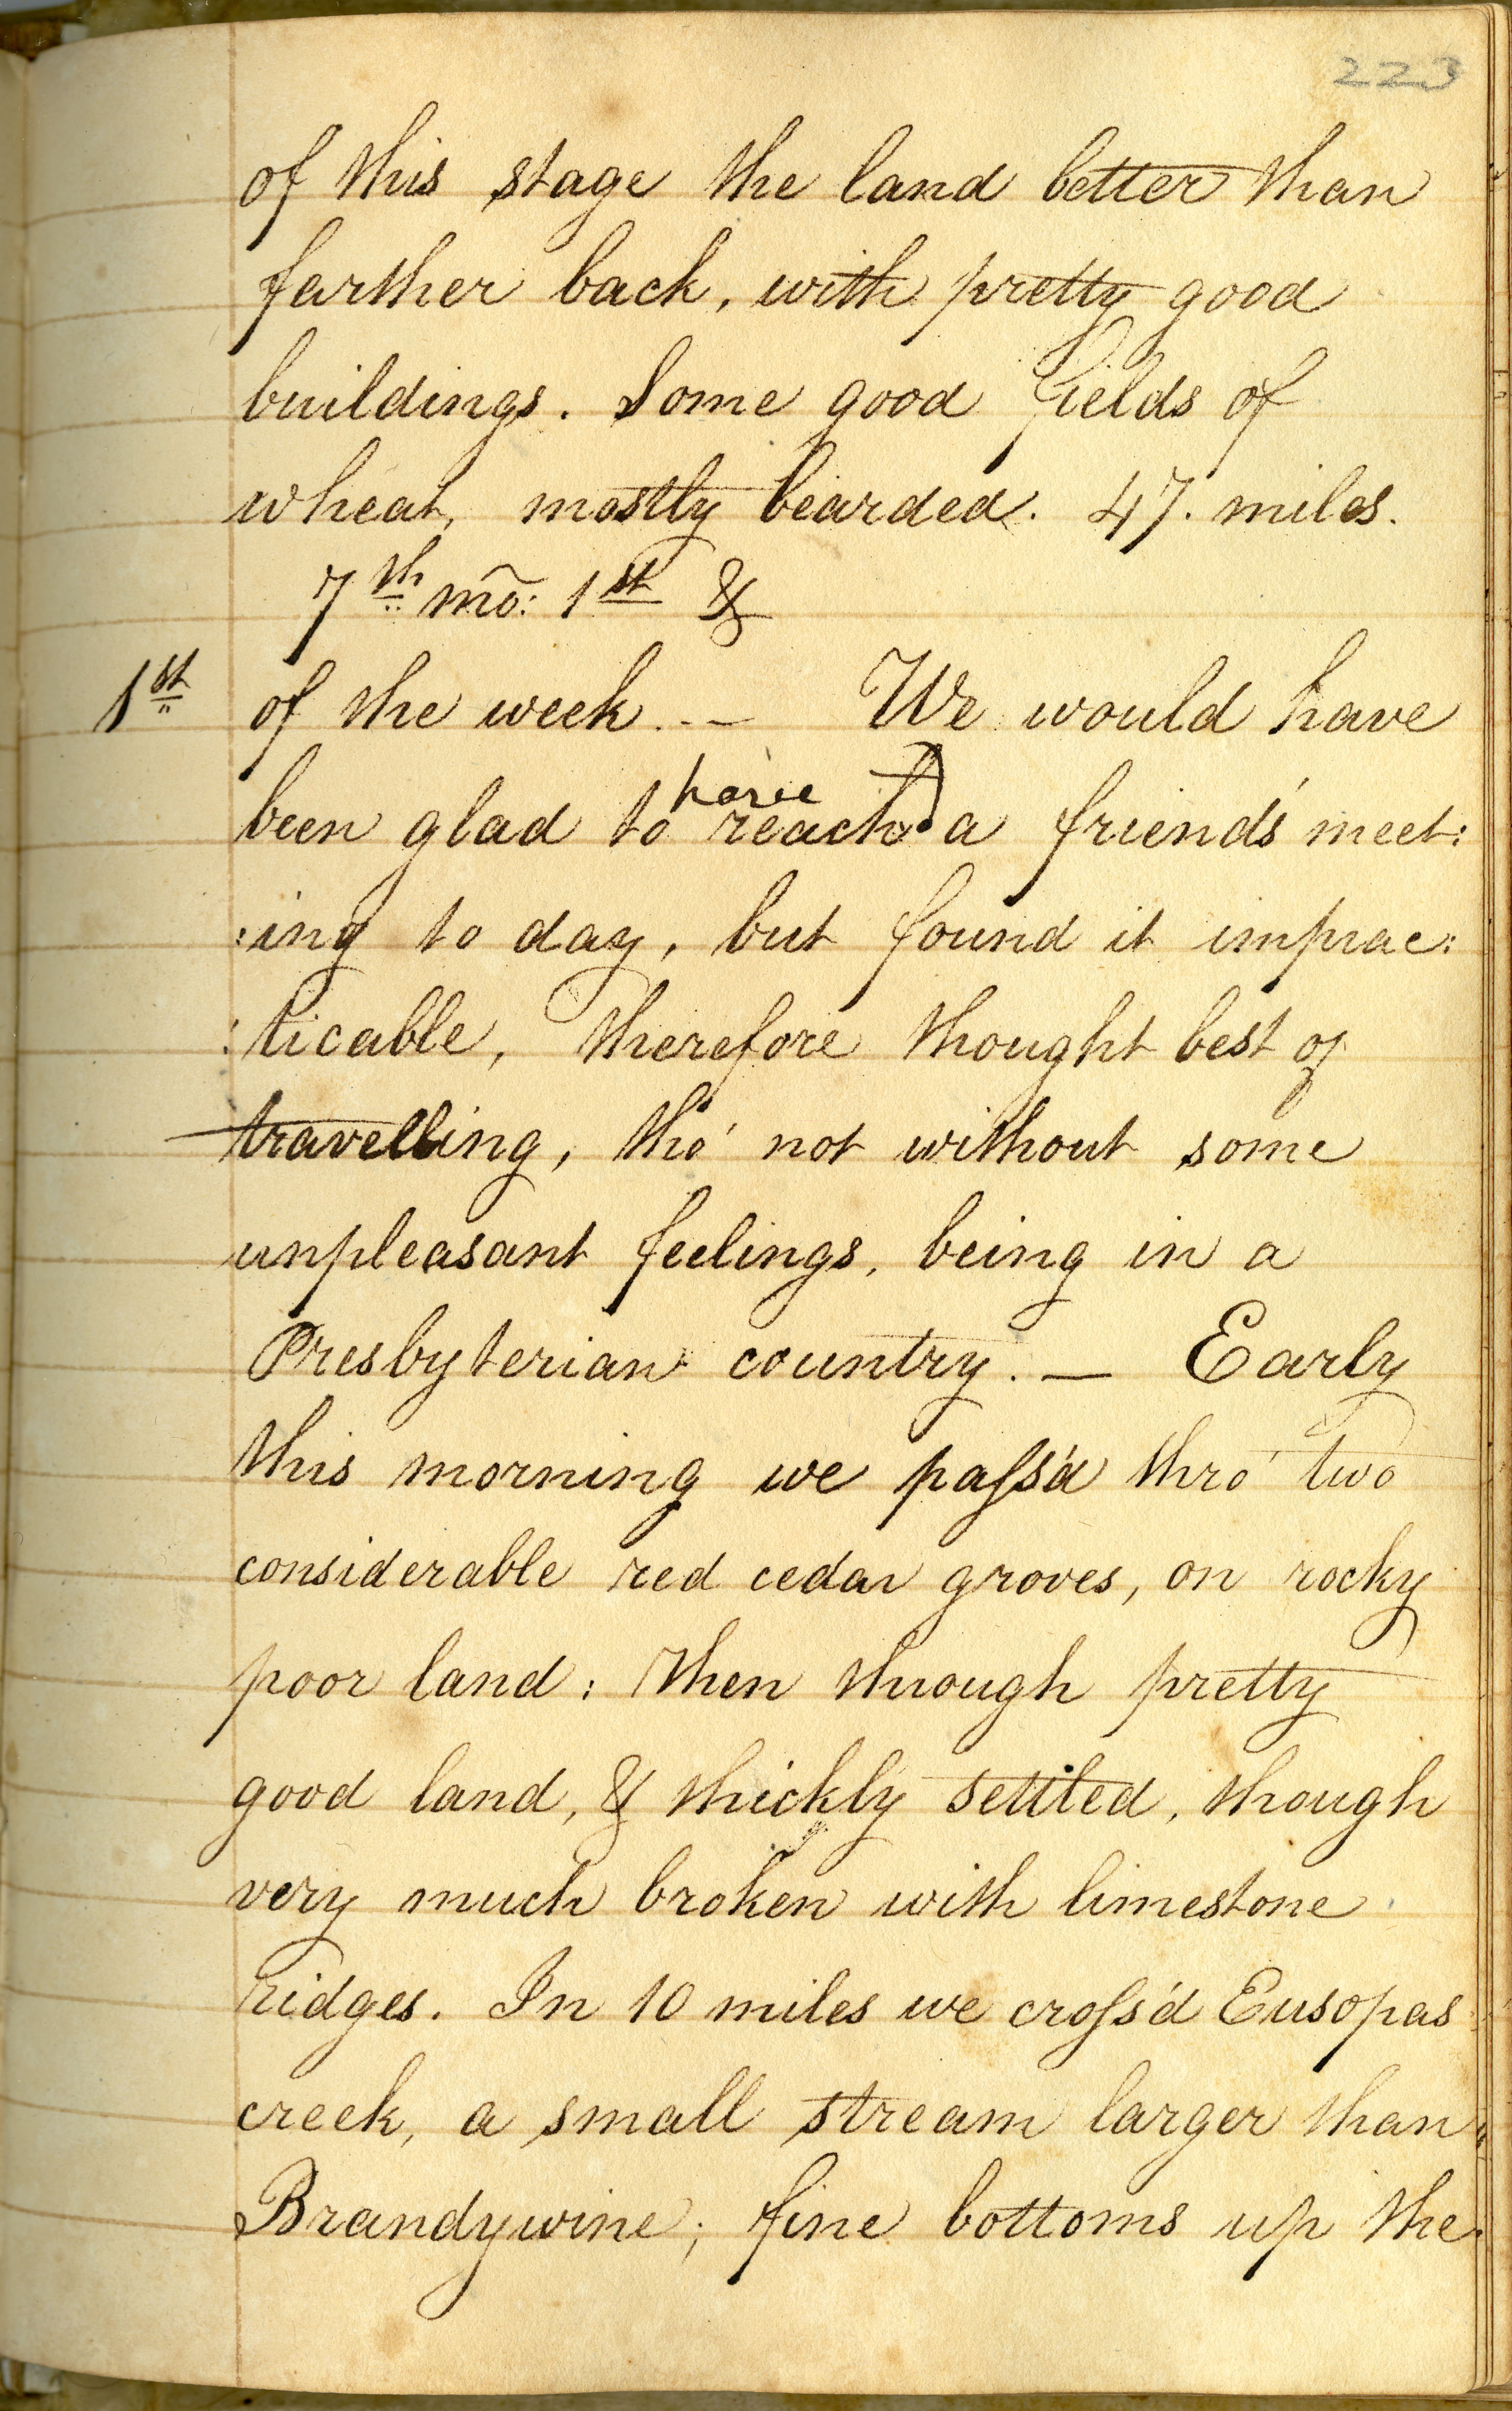 223
of this stage the land better than
farther back, with pretty good
buildings. Some good fields of
wheat, mostly bearded. 47. miles.
7th mõ: 1st &
1st of the week. — We would have
been glad to have reach'd a friends' meet:
:ing to day, but found it imprac:
:ticable, therefore thought best of
travelling, tho' not without some
unpleasant feelings, being in a
Presbyterian country. — Early
this morning we paſs'd thro' two
considerable red cedar groves, on rocky
poor land: then through pretty
good land, & thickly settled, though
very much broken with limestone
ridges. In 10 miles we croſs'd Eusopas
creek, a small stream larger than
Brandywine; fine bottoms up the